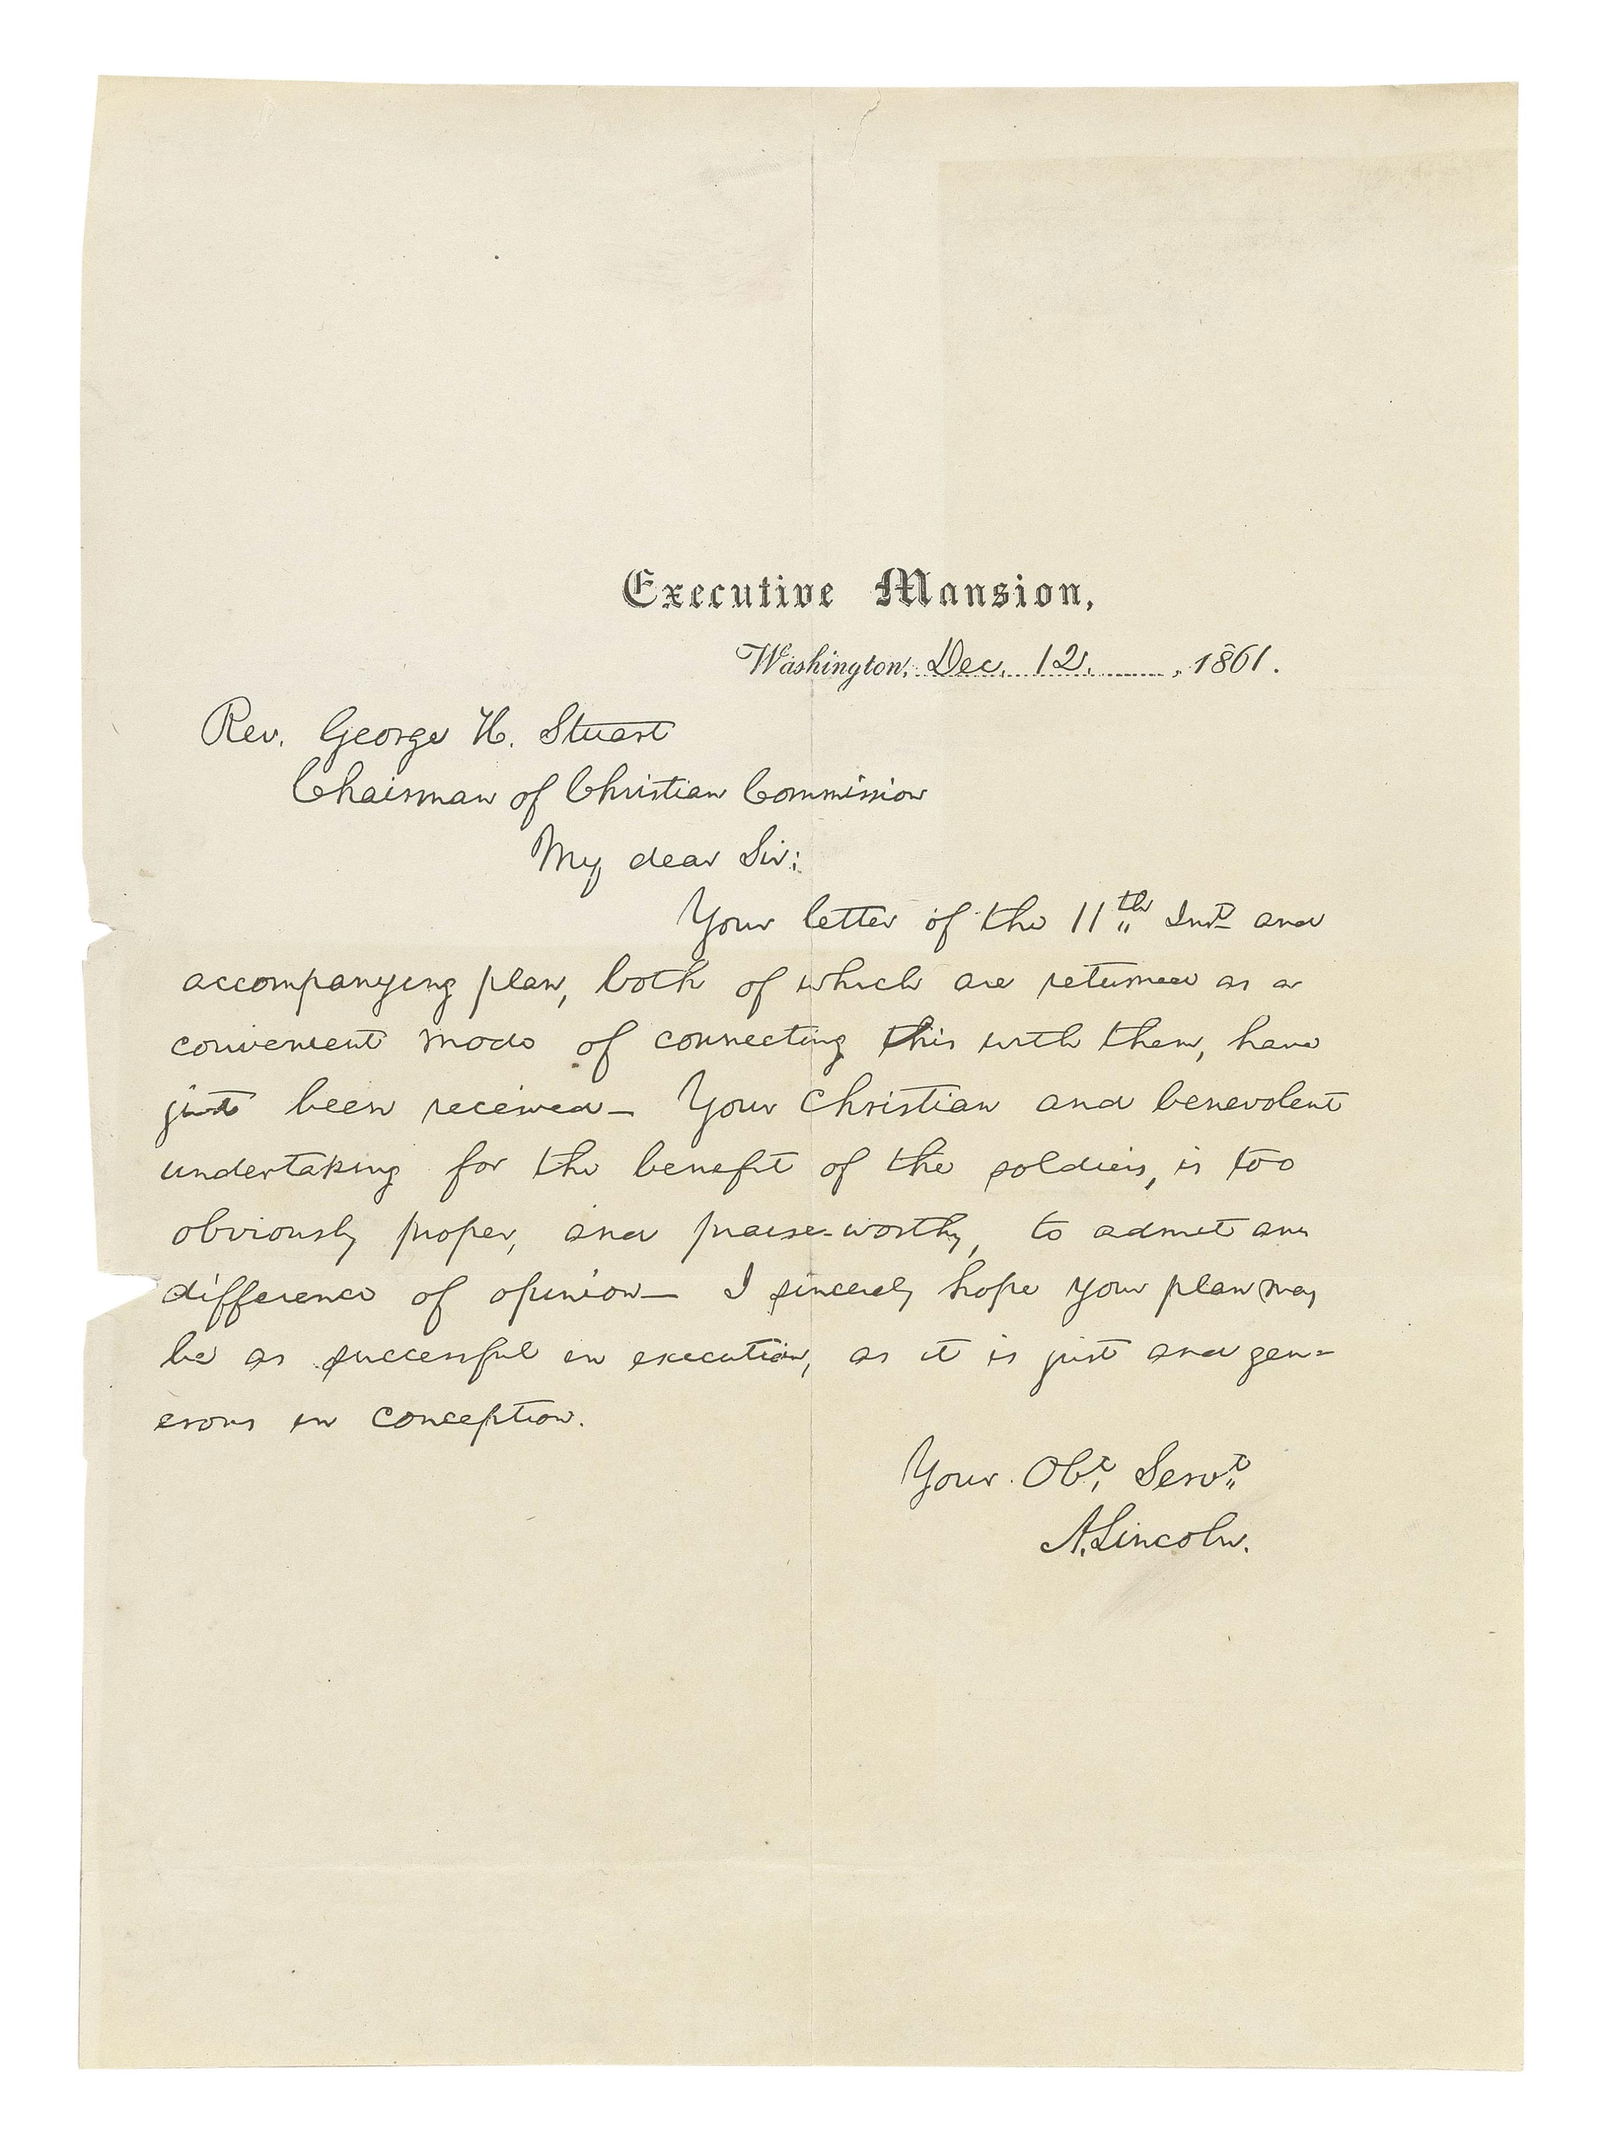 Executive Mansion,
Washington, Dec. 12. , 1861.
Rev. George H. Stuart
Chairman of Christian Commission
My dear Sir:
Your letter of the 11th Inst. and
accompanying plan, both of which are returned as a
convenient mode of connecting this with them, have
just been received— Your Christian and benevolent
undertaking for the benefit of the soldiers, is too
obviously proper, and praise-worthy, to admit any
difference of opinion— I sincerely hope your plan may
be as successful in execution, as it is just and gen=
erous in conception.
Your Obt. Servt.
A. Lincoln.